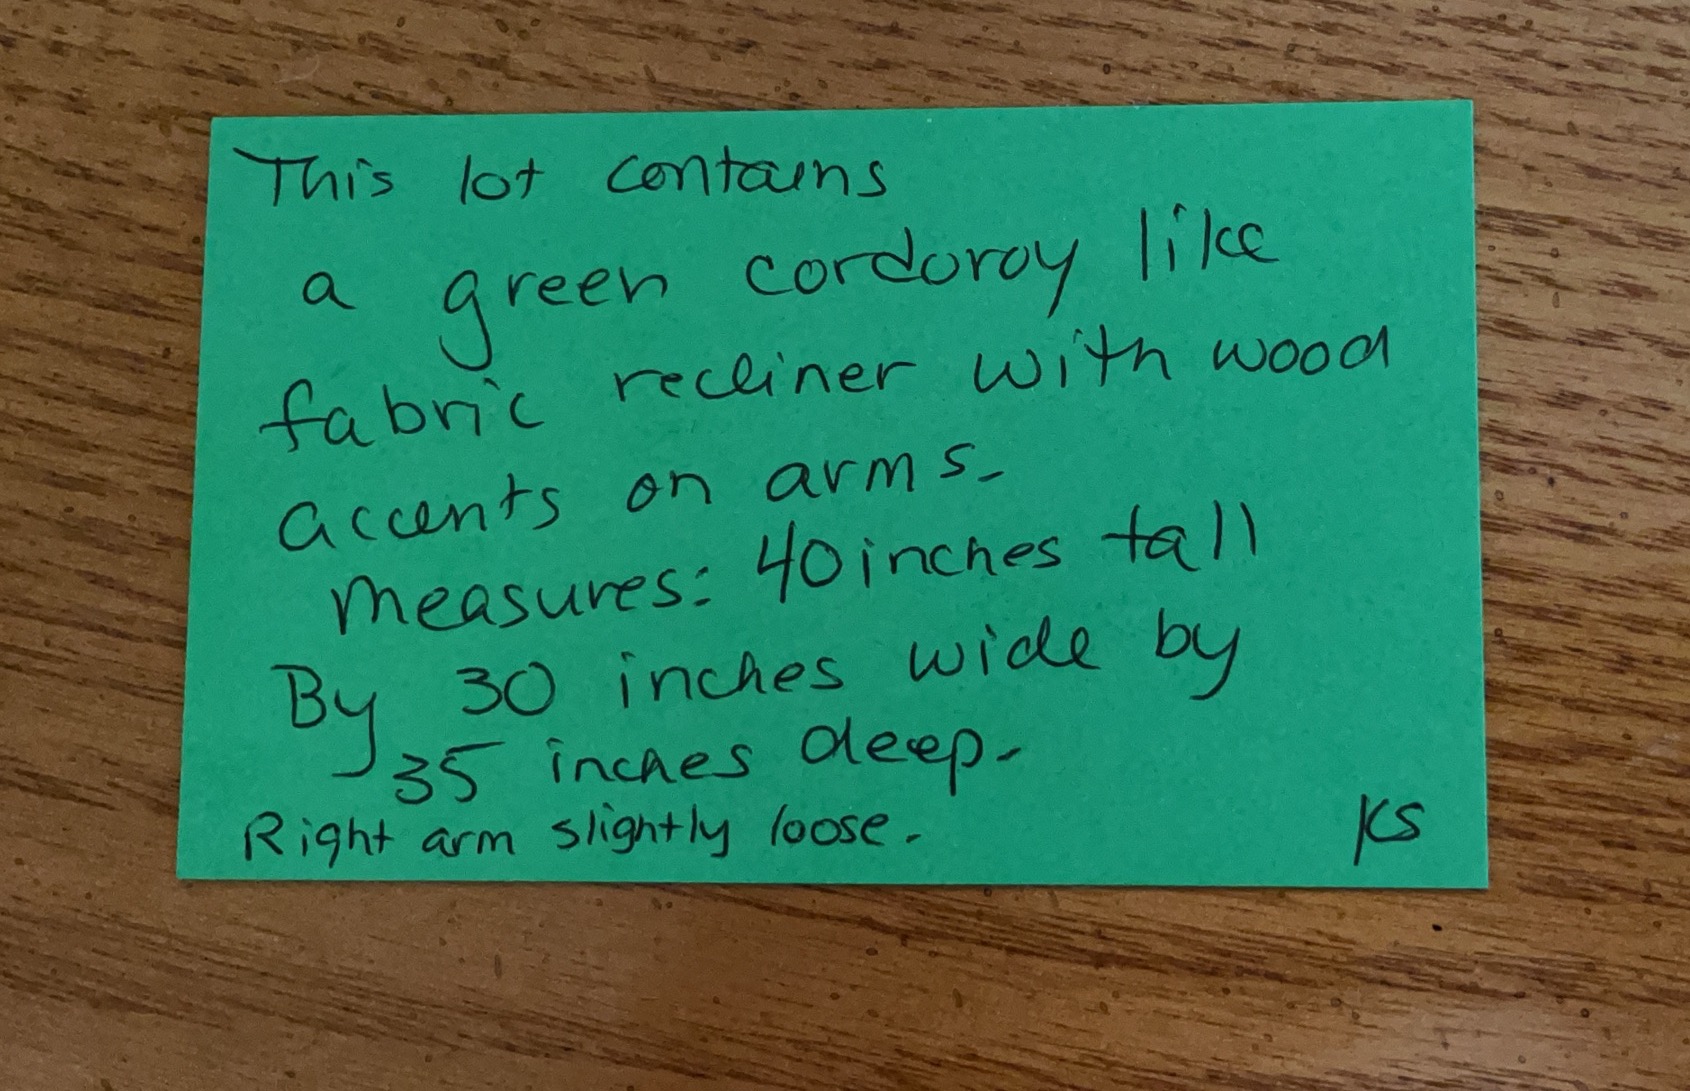 This lot contains
a green corduroy like
fabric recliner with wood
accents on arms.
Measures: 40 inches tall
By 30 inches wide by
35 inches deep.
Right arm slightly loose. KS